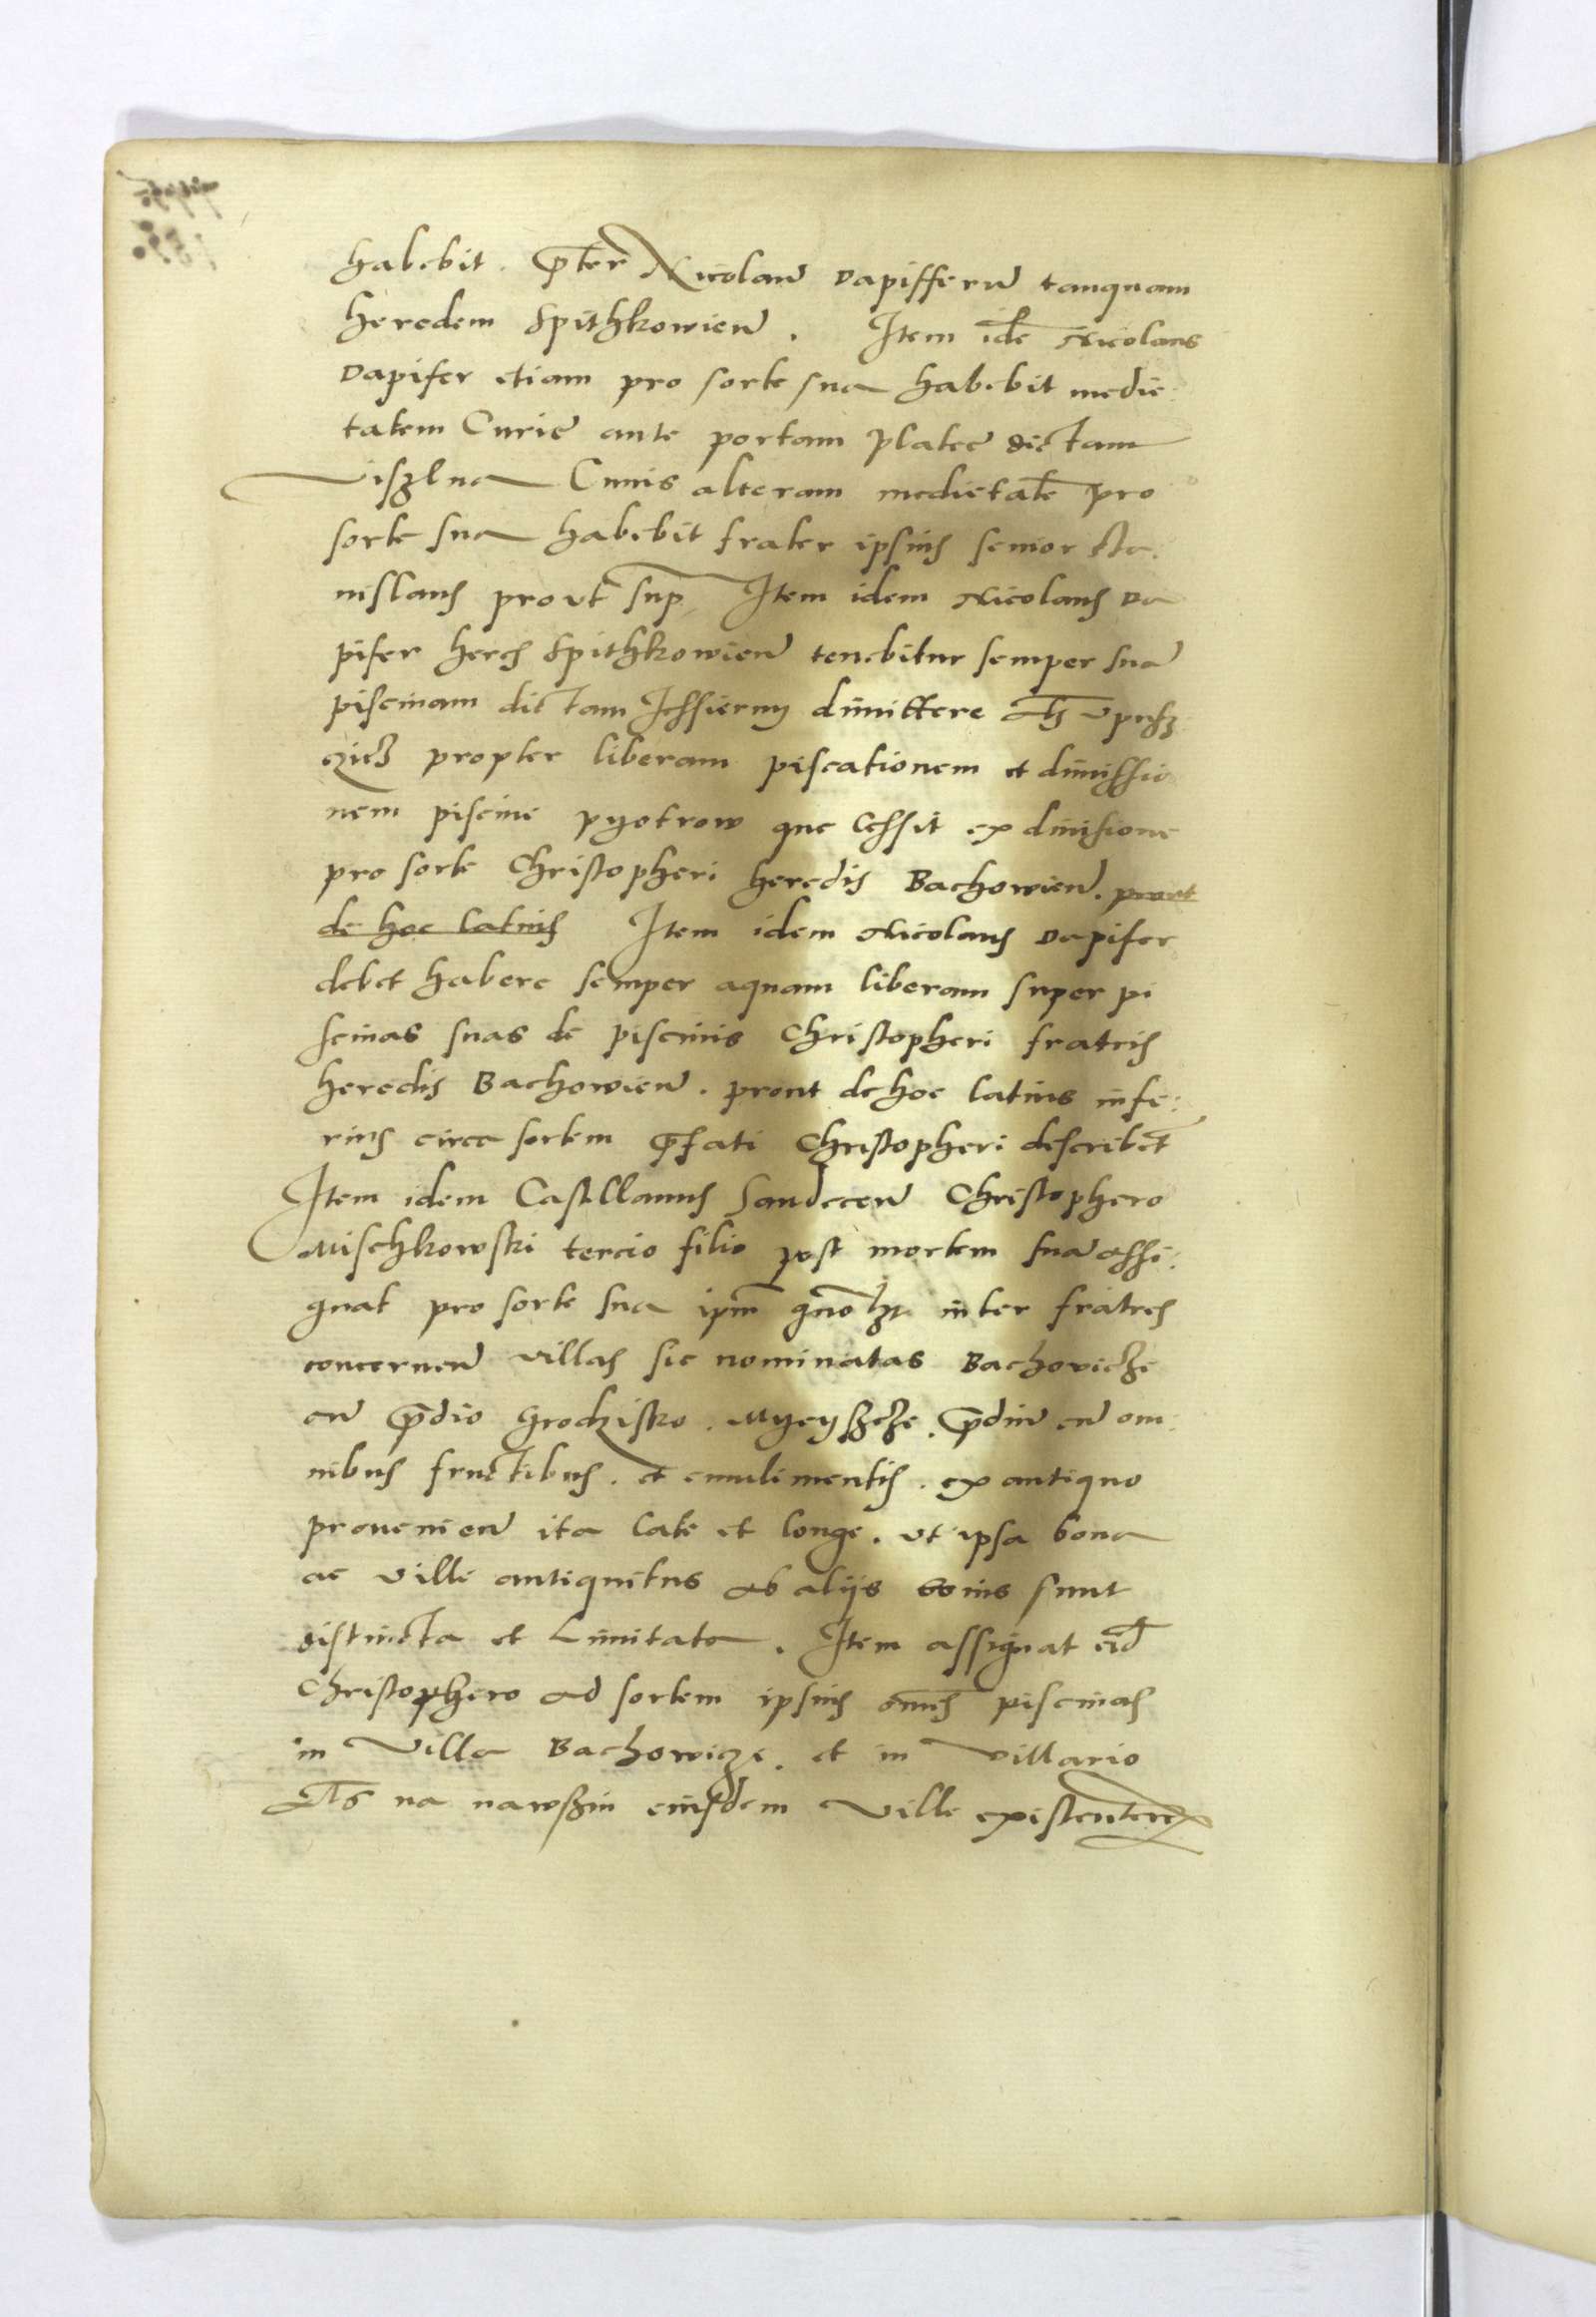 habebit. p̄ter Nicolaū dapifferū tanquam
heredem Spithkowień. Item idē Nicolaus
dapifer etiam pro sorte sua habebit medie
tatem Curie ante portam platee dictam
viszlna Cuius alteram medietatē pro
sorte sua habebit frater ipsius senior sta
nislaus prout sup Item idem Nicolaus da
pifer heres Spithkowień tenebitur semper suā
piscinam dictam dimittere als vpusz
propter liberam piscationem et dimissio
nem piscine pyotrow que Cessit ex diuisione
pro sorte Christopheri heredis Bachowień. prout
de hoc latius Item idem Nicolaus dapifer
debet habere semper aquam liberam super pi
scinas suas de piscinis Christopheri fratris
heredis Bachowień. prout de hoc latius infe:
rius circa sortem p̄fati Christopheri describet̄
Item idem Castellanus Sandeceń Christophero
Mischkowski tercio filio post mortem suā assi:
gnat pro sorte sua ipm̄ inter fratres
concerneń villas sic nominatas Bachovicze
cū p̄dio grodzisko. Myeyszcze. p̄diū cū om
nibus fructibus. et emulimentis. ex antiquo
provenień ita late et longe. vt ipsa bona
ac ville antiquitus ab alijs bonis sunt
distincta et Limitata. Item assignat eid̄
Christophero ad sortem ipsius om̄es piscinas
in villa Bachowicze. et in villario
als na nawsziu eiusdem ville existenteꝝ